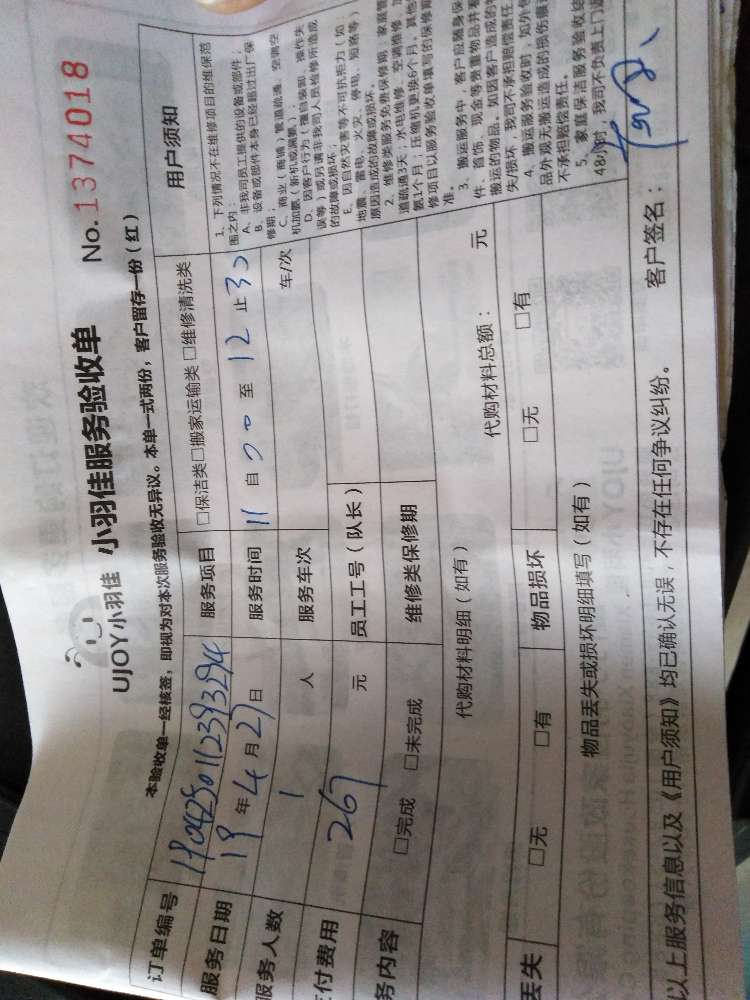 UJOY小羽佳 小羽佳服务验收单 No. 1374018
本验收单一经核签，即视为对本次服务验收无异议。本单一式两份，客户留存一份（红）
订单编号
服务项目 □保洁类□搬家运输类 □维修清洗类
服务日期 19 年 4 月 27 日
服务时间 11 自 00 至 12 止 30
服务人数 1 人
服务车次 车/次
付费用 267 元
员工工号（队长）
务内容 □完成 □未完成
维修类保修期
代购材料明细（如有）
代购材料总额： 元
丢失 □无 □有
物品损坏 □无 □有
物品丢失或损坏明细填写（如有）
用户须知
1、下列情况不在维修项目的维保范
围之内：
A、非我司员工提供的设备或部件；
B、设备或部件本身已经超过出厂保
修期；
C、商业（商铺）管道疏通、空调空
机加氨（新机或漏氨）；
D、因客户行为（擅自装卸、操作失
误等）或另请非我司人员检修所造成
的故障或损坏；
E、因自然灾害等不可抗拒力（如：
地震、雷电、火灾、停电、短路等）
原因造成的故障或损坏。
2、维修类服务免费保修期：家庭管
道疏通3天；水电维修、空调维修、加
氨1个月；压缩机更换6个月。其他
修项目以服务验收单填写的保修期
准。
3、搬运服务中，客户应随身保
件、首饰、现金等贵重物品并看
搬运的物品。如因客户造成的物
失/损坏，我司不承担赔偿责任
4、搬运服务验收时，如外包
品外观无搬运造成的损伤痕迹
不承担赔偿责任。
5、家庭保洁服务验收结
48小时，我司不负责上门返
以上服务信息以及《用户须知》均已确认无误，不存在任何争议纠纷。 客户签名：